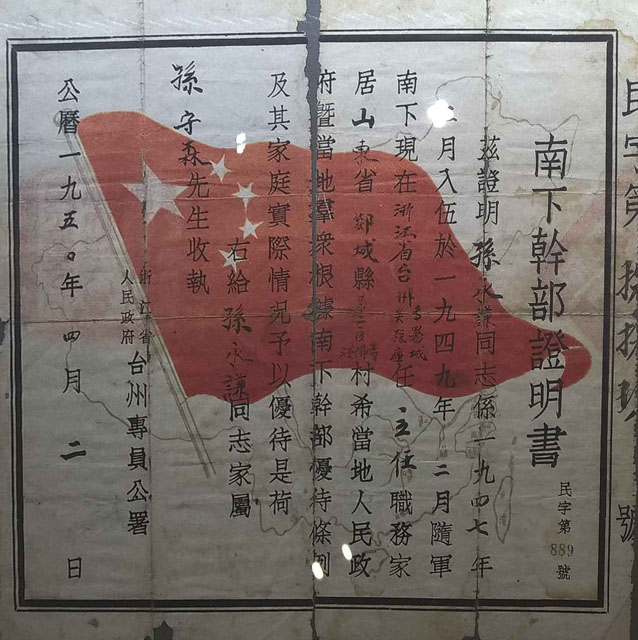 南下幹部證明書
民字第889號
茲證明孫永謹同志係一九四七年
二月入伍於一九四九年二月隨軍
南下現在浙江省台州專署倉庫任主任職務家
居山東省郯城縣村希當地人民政
府暨當地羣衆根據南下幹部優待條例
及其家庭實際情况予以優待是荷
右給孫永謹同志家屬
孫守森先生收執
浙江省人民政府台州專員公署
公曆一九五〇年四月二日
民字第號